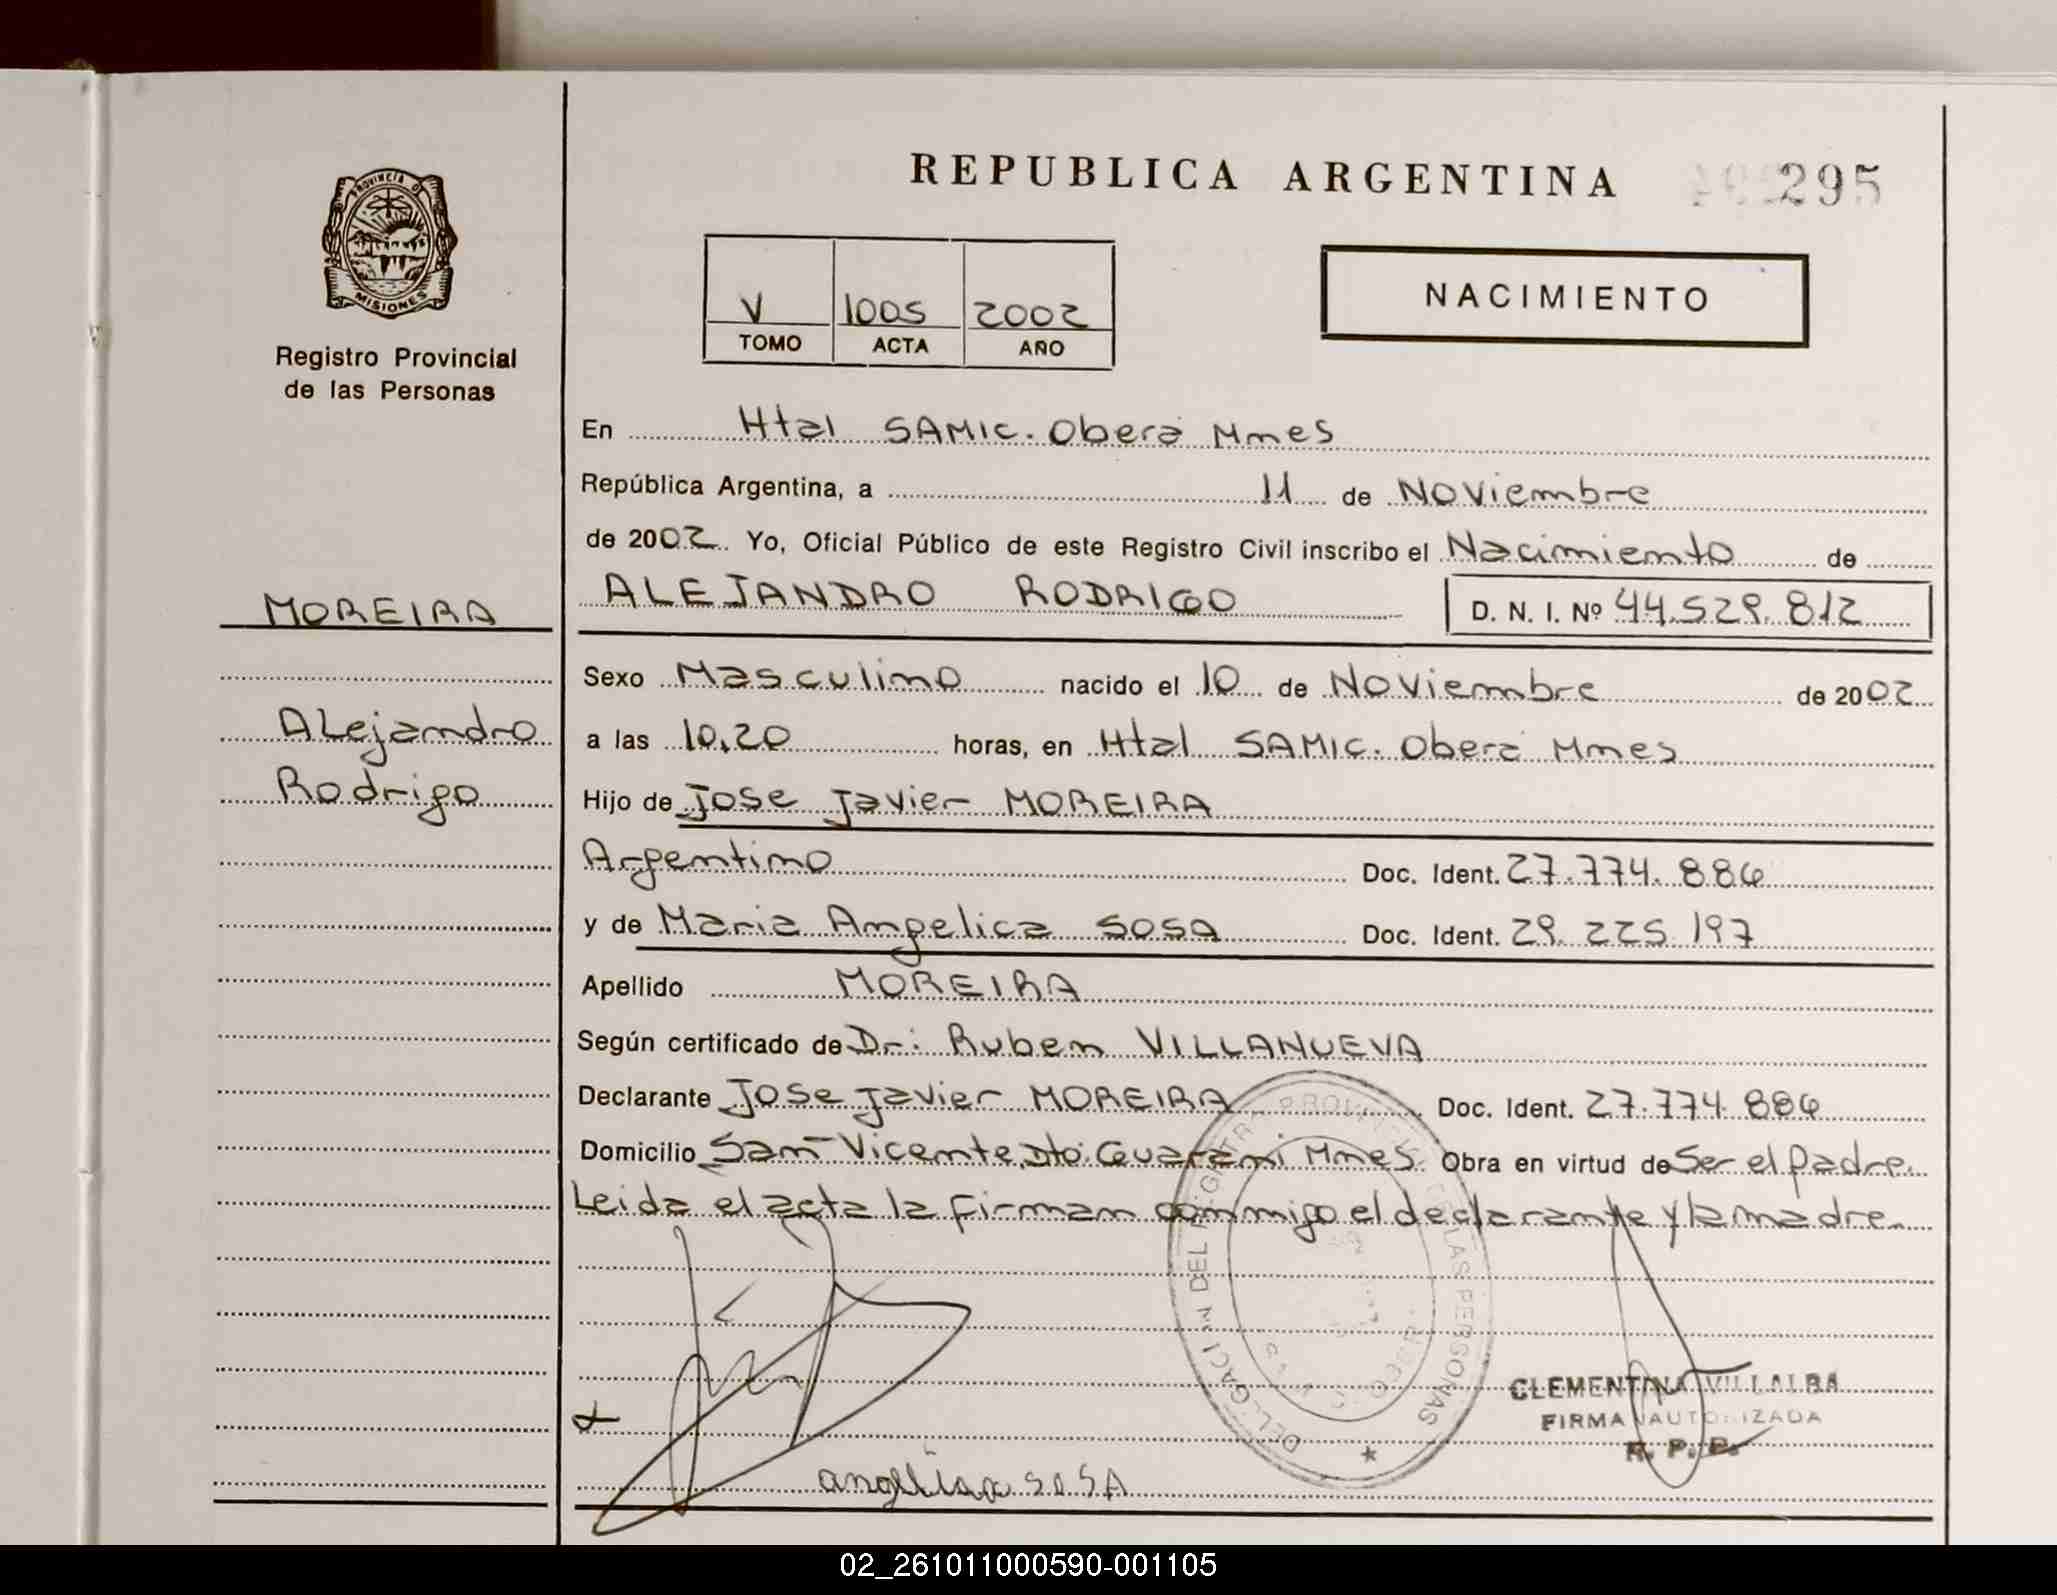 REPUBLICA ARGENTINA
295
PROVINCIA DE
MISIONES
Registro Provincial
de las Personas
V 1005 2002
TOMO ACTA AÑO
NACIMIENTO
En Htal SAMIC. Oberá Mnes
República Argentina, a 11 de Noviembre
de 2002 Yo, Oficial Público de este Registro Civil inscribo el Nacimiento de
MOREIRA
ALEJANDRO RODRIGO D. N. I. Nº 44.529.812
Sexo Masculino nacido el 10 de Noviembre de 2002
Alejandro
a las 10,20 horas, en Htal SAMIC. Oberá Mnes
Rodrigo
Hijo de Jose Javier MOREIRA
Argentino Doc. Ident. 27.774.886
y de Maria Angelica SOSA Doc. Ident. 29.225.197
Apellido MOREIRA
Según certificado de Dr: Ruben VILLANUEVA
Declarante Jose Javier MOREIRA Doc. Ident. 27.774.886
Domicilio San Vicente, Dto: Guaraní Mnes. Obra en virtud de Ser el padre.
Leida el acta la firman conmigo el declarante y la madre.
CLEMENTINA VILLALBA
FIRMA AUTORIZADA
R. P. P.
angelica SOSA
02_261011000590-001105